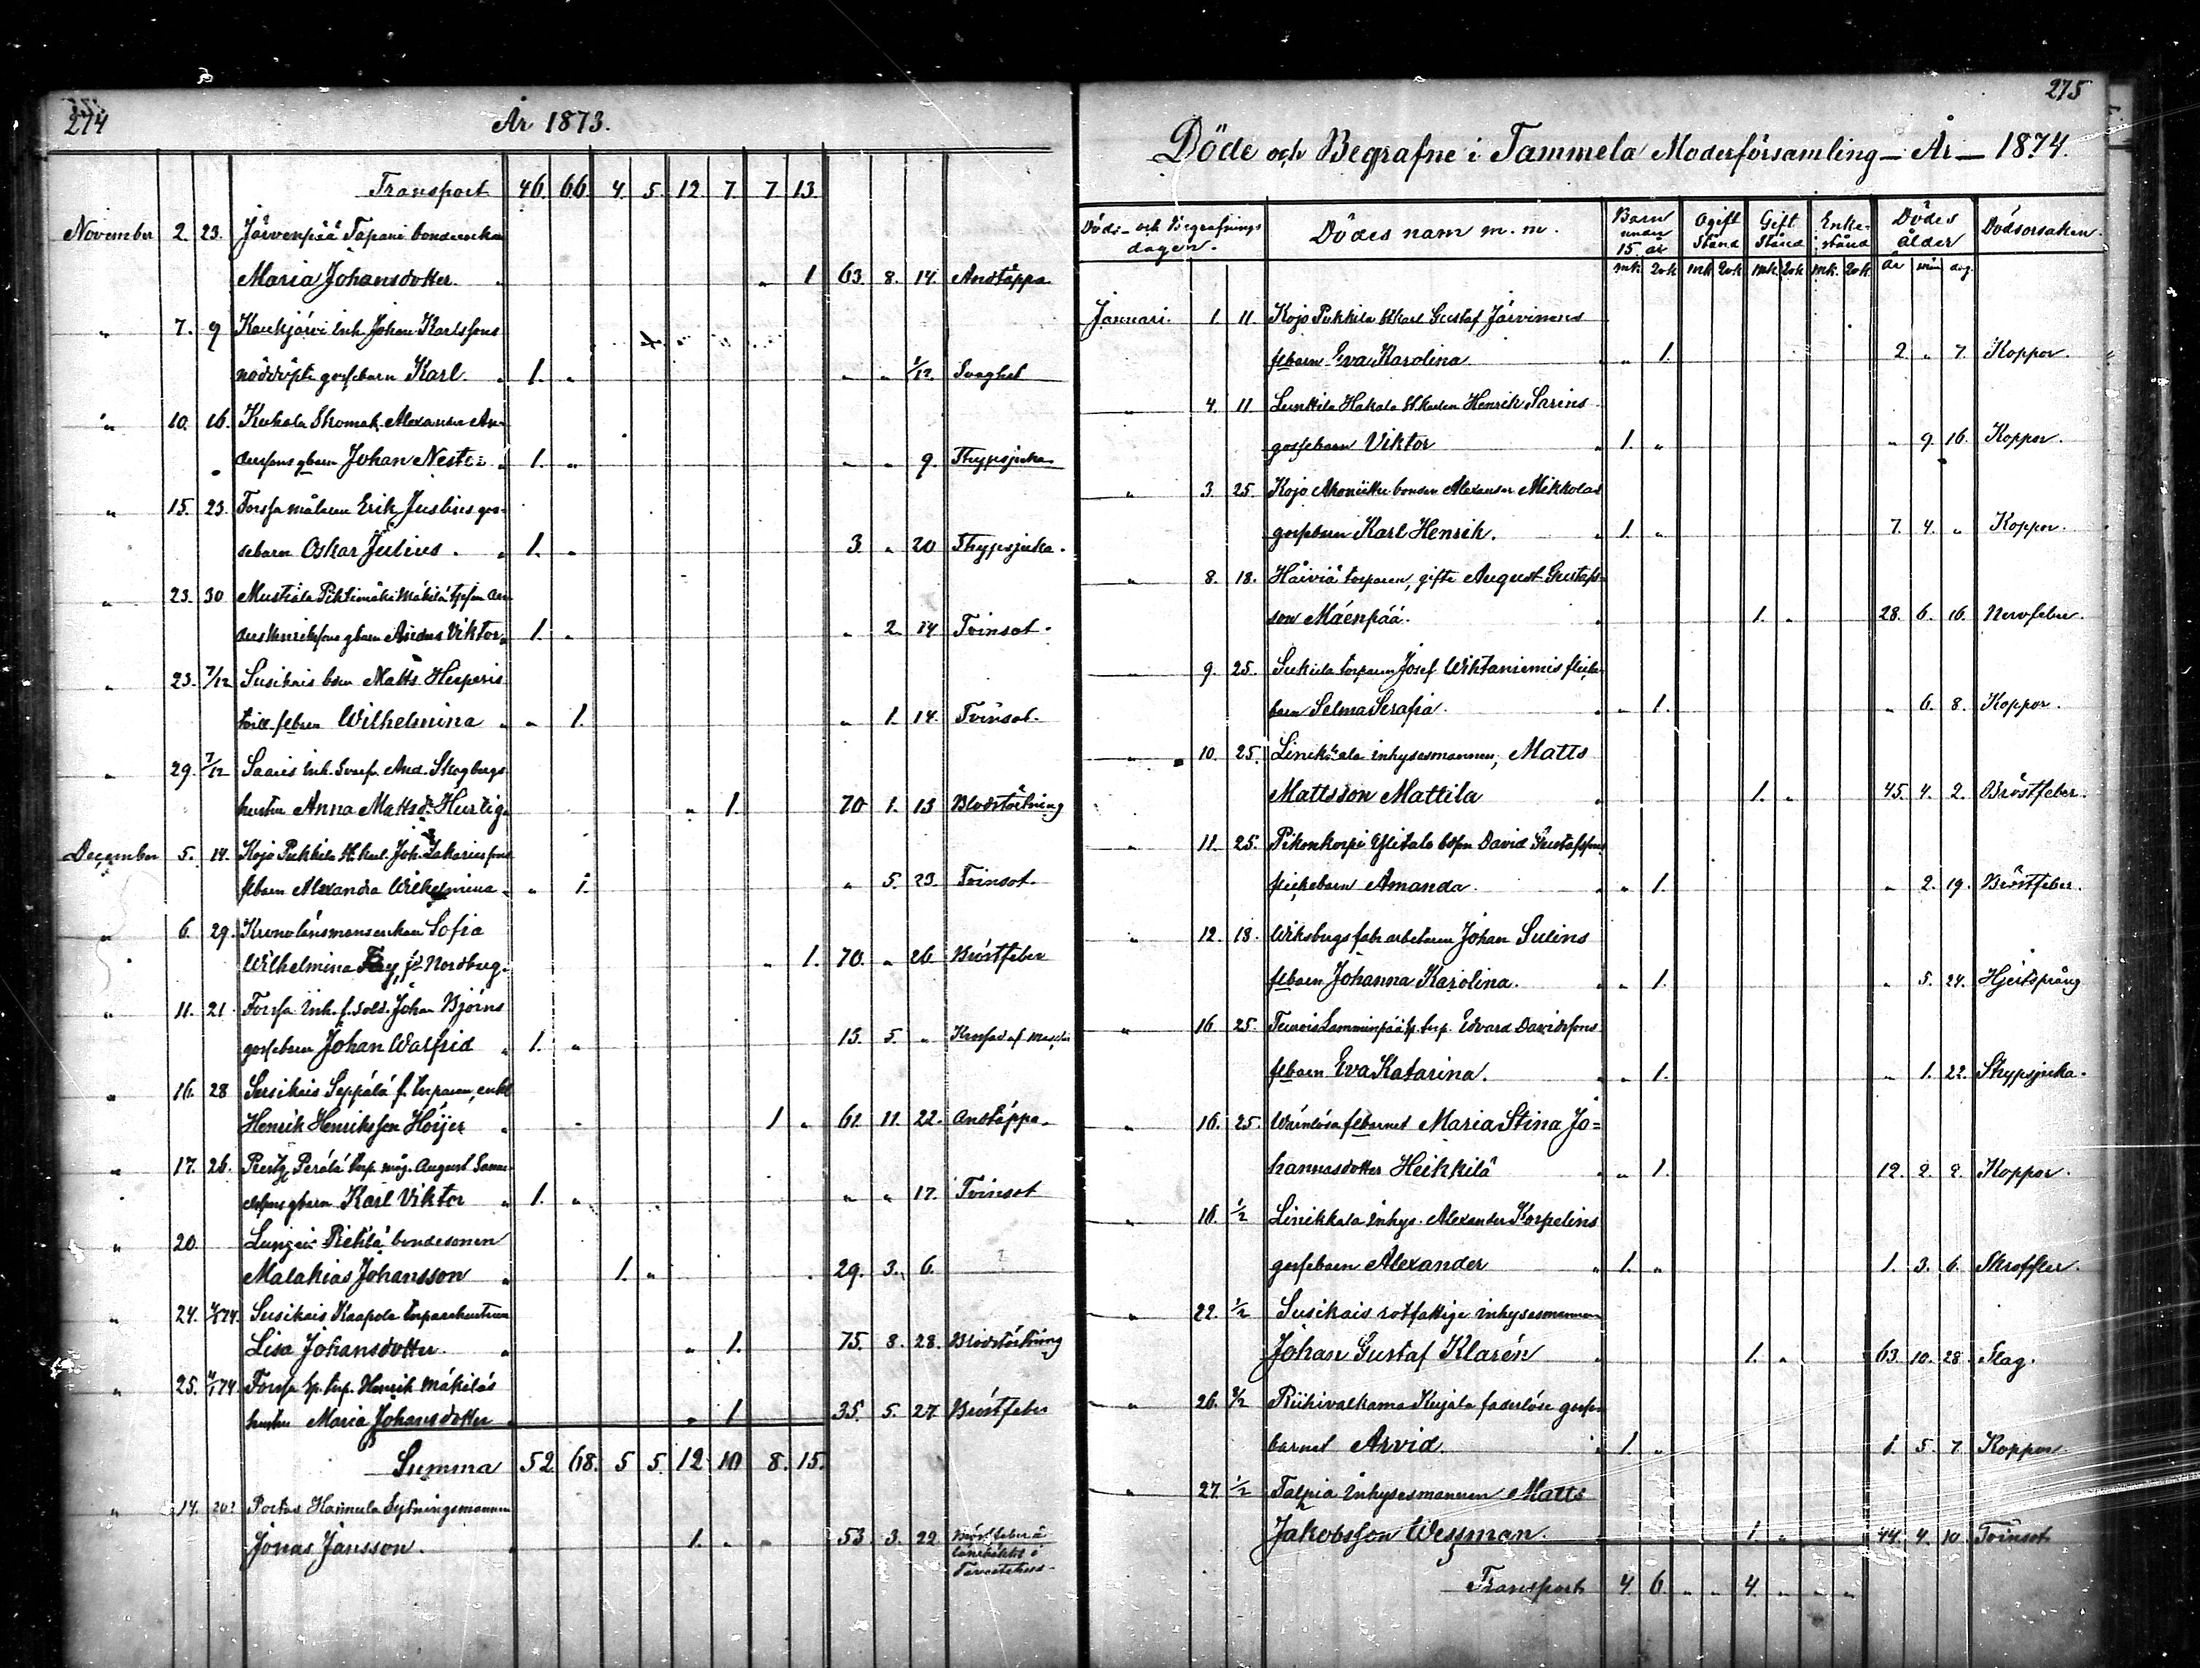 274
År 1873.
Transport 46. 66. 4. 5. 12. 7. 7. 13.
November 2. 23. Järvenpää Tapani bondeenkan
Maria Johansdotter. " 1 63. 8. 14. Andtäppa.
" 7. 9 Kaukjärvi inh. Johan Karlssons
nöddöpte gossebarn Karl. " 1. " " " 1/12. Svaghet
" 10. 16. Kuhala Skomak. Alexander An-
derssons gbarn Johan Nestor " 1. " " " 9. Strypsjuka
" 15. 23. Forssa målaren Erik Juslins gos-
sebarn Oskar Julius. " 1. " 3. " 20 Strypsjuka.
" 23. 30 Mustiala Pehtimäki Mäkilä
Henrikssons gbarn Anders Viktor " 1. " " 2. 14 Tvinsot.
" 23. 7/12 Susikais Matts Hesperis
tvill. flbarn Wilhelmina " " 1. " 1. 14. Tvinsot.
" 29. 7/12 Saaris inh. And. Skogbergs
hustru Anna Mattsdr Hurtig " 1. 70 1. 13 Blodstörtning
December 5. 14. Kojo Pukkila Joh. Zakariassons
flbarn Alexandra Wilhelmina " " 1. " 5. 23. Tvinsot.
" 6. 29. Kronolänsmansenkan Sofia
Wilhelmina född Nordberg. " 1. 70. " 26 Bröstfeber
" 11. 21 Forssa inh. f. sold. Johan Björns
gossebarn Johan Walfrid " 1. " 13. 5. " Krossad af
" 16. 28 Susikais Seppälä f. torparen, enkl.
Henrik Henriksson Höijer " 1 " 61. 11. 22. Andtäppa.
" 17. 26. Perälä torp. August
gbarn Karl Viktor " 1. " " " 17. Tvinsot
" 20. Lunjais Pietilä bondesonen
Malakias Johansson " 1. " 29. 3. 6.
" 24. Susikais Kaapola torparehustrun
Lisa Johansdotter. " " 1. 75. 8. 28. Blodstörtning
" 25. Forssa sp. torp. Henrik Mäkiläs
hustru Maria Johansdotter " " 1 35. 5. 27 Bröstfeber
Summa 52. 68. 5 5. 12. 10 8. 15.
" 14. 20? Portas Hannula Sytningsmannen
Jonas Jansson. 1. " " 53 3. 22 Bröstfeber å
länehäktet i
Tavastehus.
275
Döde och Begrafne i Tammela Moderförsamling – År – 1874.
Döds- och Begrafnings
dagen.
Dödes nam m. m.
Barn
under
15 år
Ogift
Stånd
Gift
Stånd
Enke-
stånd
Dödes
ålder
Dödsorsaken.
mk. qvk mk qvk mk qvk mk. qvk. år mån dag.
Januari. 1. 11. Kojo Pukkila Gustaf Järvinens
flbarn Eva Karolina " " 1. 2. " 7. Koppor.
" 4 11 Lunkila Hakala Henrik Sarins
gossebarn Viktor " 1. " " 9 16. Koppor.
" 3 25. Kojo bonden Alexander Mikkolas
gossebarn Karl Henrik. " 1. " 7. 4. " Koppor.
" 8. 18. Häiviä torparen, gifte August Gustafs-
son Mäenpää. " 1. " 28. 6. 16. Nervfeber.
" 9. 25. Sukula torparen Josef Wiktaniemis flicke-
barn Selma Serafia. " " 1. " 6. 8. Koppor.
" 10. 25. Linikkala inhysesmannen, Matts
Mattsson Mattila " 1. " 45. 4. 2. Bröstfeber.
" 11. 25. Pikonkorpi Ylitalo David Gustafssons
flickebarn Amanda. " " 1. " 2. 19. Bröstfeber.
" 12. 18. Wiksbergs fabr. arbetaren Johan Sulins
flbarn Johanna Karolina. " " 1. " 5. 24. Hjertsprång
" 16 25. Teuro Lamminpää sp. torp. Edvard Davidssons
flbarn Eva Katarina. " " 1. " 1. 22. Strypsjuka.
" 16. 25. Wärnlösa flbarnet Maria Stina Jo=
hannasdotter Heikkilä " " 1. 12. 2. 2. Koppor.
" 16. 1/2 Linikkala inhys. Alexander Korpelins
gossebarn Alexander " 1. " 1. 3. 6. Skroffler.
" 22. 1/2 Susikais rotfattige inhysesmannen
Johan Gustaf Klarén " 1. " 63. 10. 28. Slag.
" 26. Riihivalkama Kujala faderlöse gosse-
barnet Arvid. " 1. " 1. 5. 7. Koppor
" 27. 1/2 Talpia inhysesmannen Matts
Jakobsson Wessman. 1. " " " 44. 4. 10. Tvinsot.
Transport 4. 6. " " 4. " " "